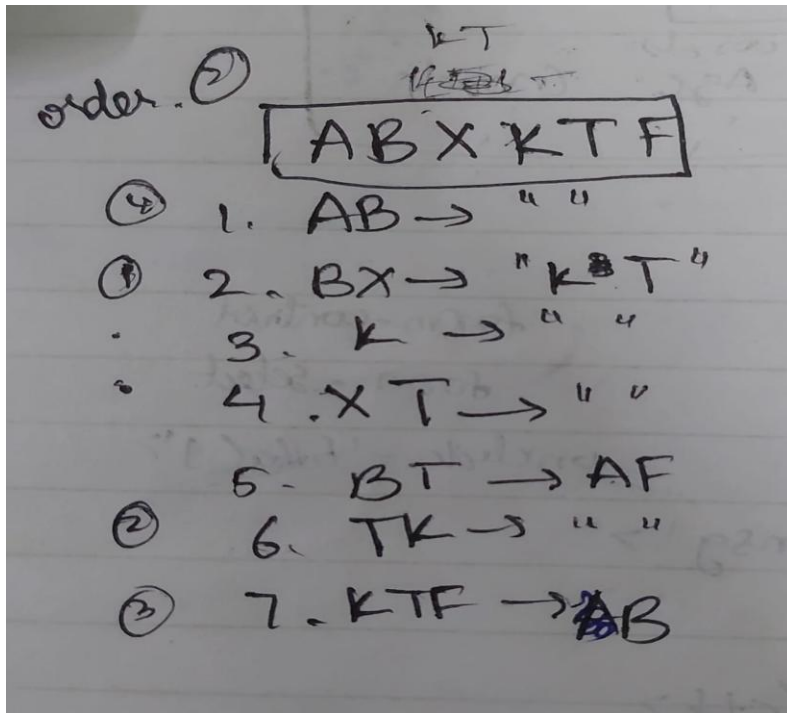 KT
order. ②
ABXKTF
④ 1. AB → " "
① 2. BX → "KT"
3. K → " "
4. XT → " "
5- BT → AF
② 6. TK → " "
③ 7. KTF → AB